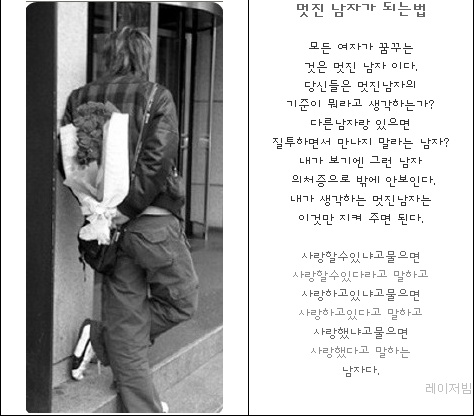 멋진 남자가 되는법
모든 여자가 꿈꾸는
것은 멋진 남자 이다.
당신들은 멋진남자의
기준이 뭐라고 생각하는가?
다른남자랑 있으면
질투하면서 만나지 말라는 남자?
내가 보기에 그런 남자
의처증으로 밖에 안보인다.
내가 생각하는 멋진남자는
이것만 지켜 주면 된다.
사랑할수있냐고물으면
사랑할수있다라고 말하고
사랑하고있냐고물으면
사랑하고있다고 말하고
사랑했냐고물으면
사랑했다고 말하는
남자다.
레이저빔